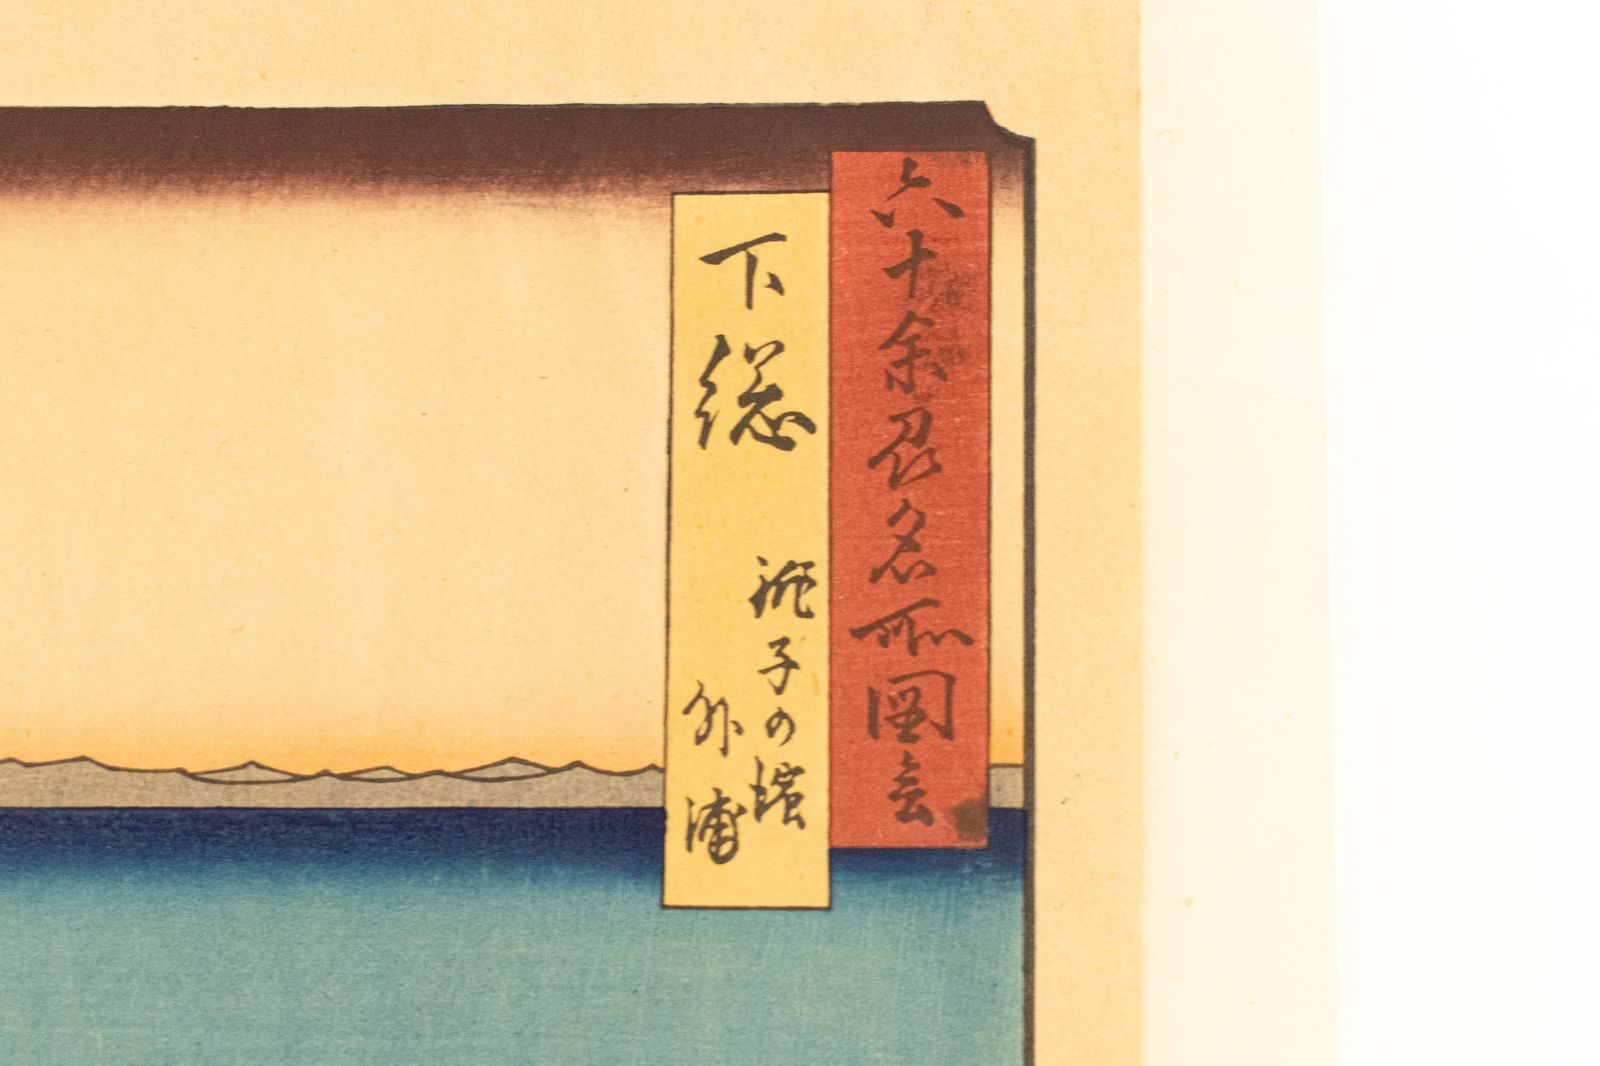 六十余州名所圖会
下総
銚子の濱
外浦